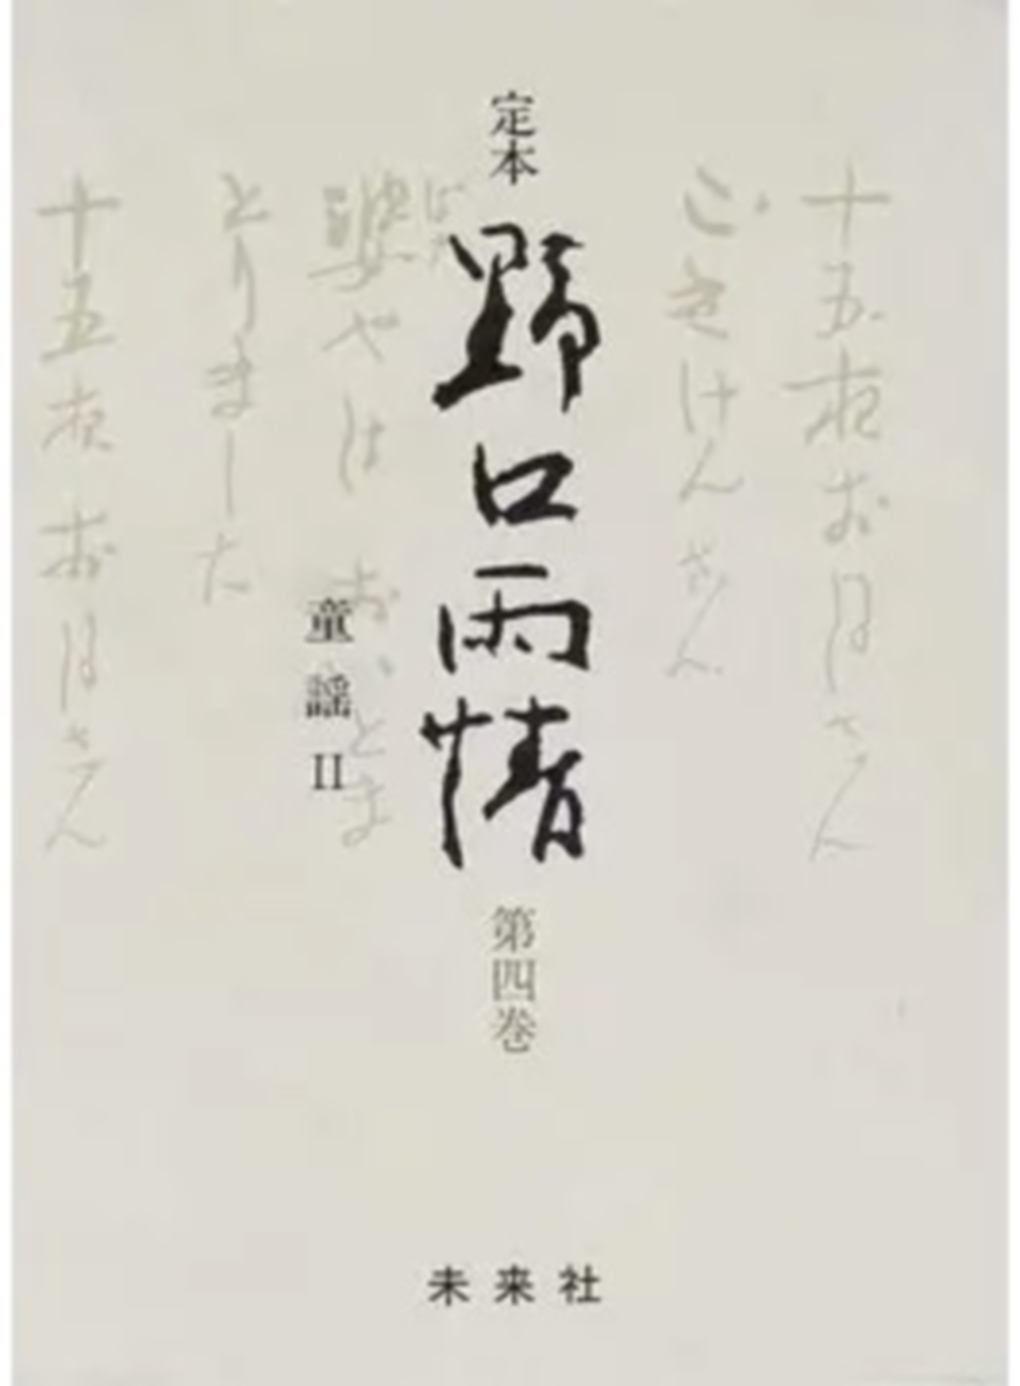 十五夜お月さん
ごきげんさん
婆やは おいとま
とりました
十五夜お月さん
定本
野口雨情
第四巻
童謡 II
未来社